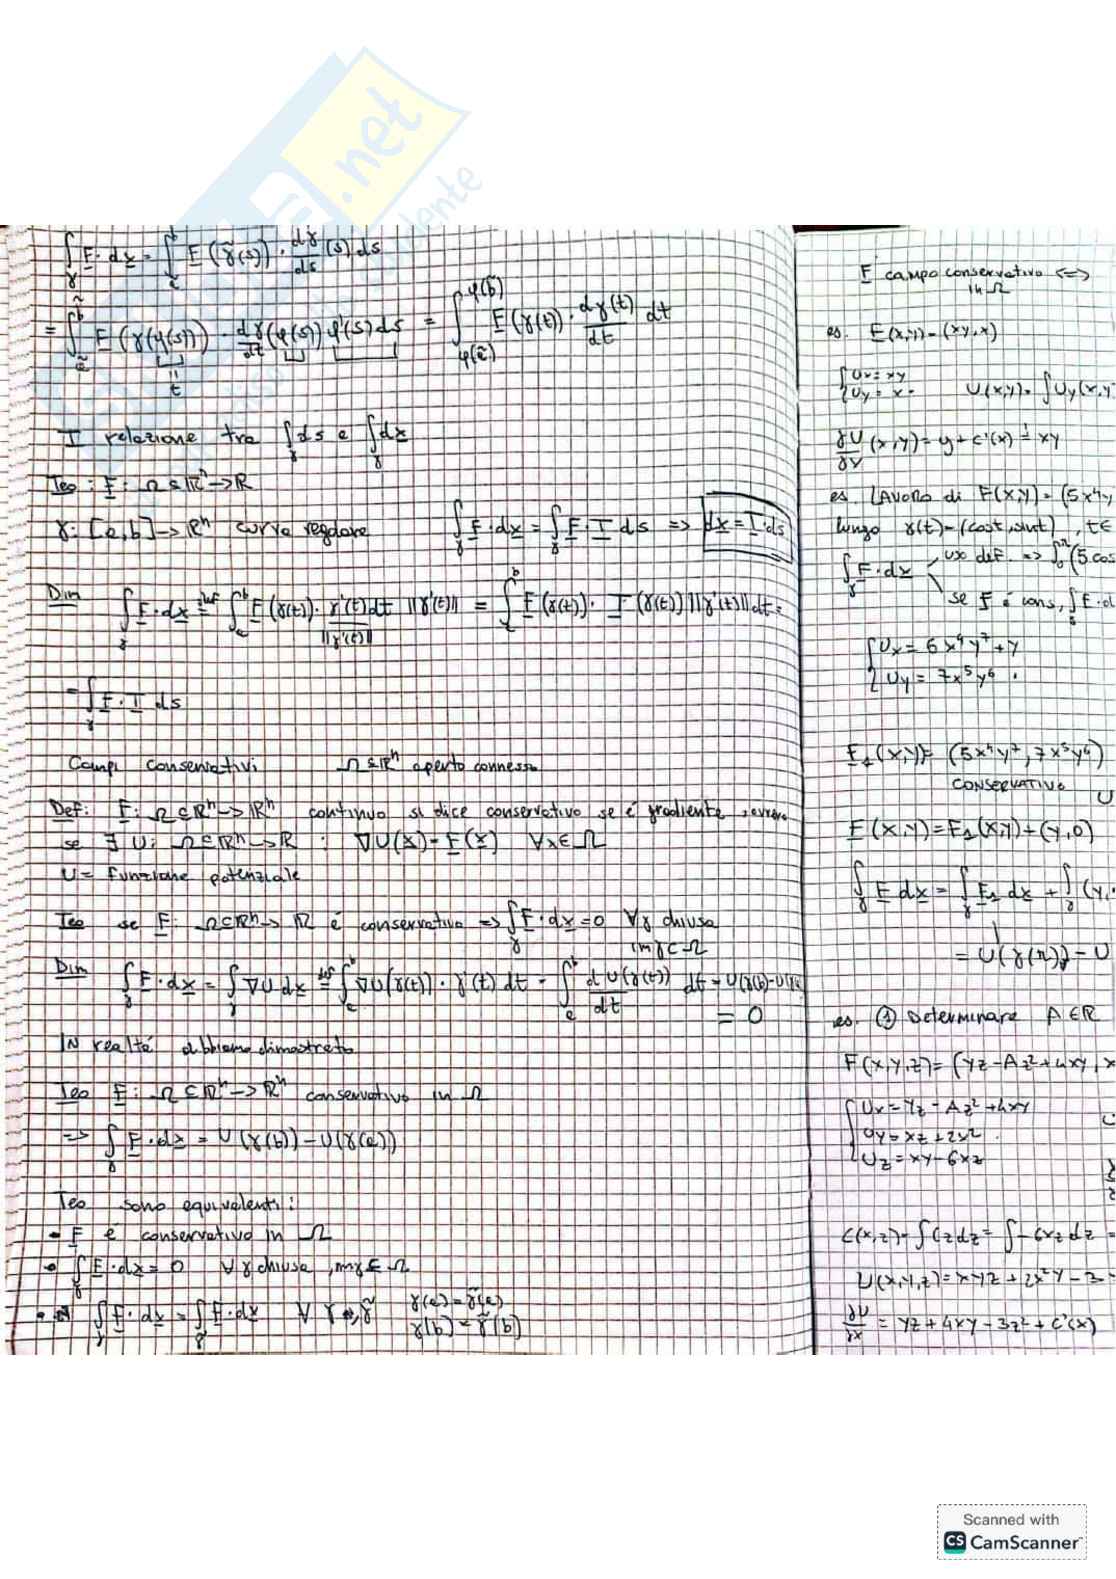 .net
∫_γ̃ F·dx = ∫_ã^b̃ F(γ̃(s))·dγ̃/ds (s) ds
= ∫_ã^b̃ F(γ(φ(s)))·dγ/dt (φ(s)) φ'(s) ds = ∫_φ(ã)^φ(b̃) F(γ(t))·dγ(t)/dt dt
"
t
I relazione tra ∫_γ ds e ∫_γ dx
Teo: F: Ω⊆ℝⁿ->ℝ
γ: [a,b]->ℝⁿ curva regolare ∫_γ F·dx = ∫_γ F·T ds => dx = T·ds
Dim ∫_γ F·dx =def ∫_a^b F(γ(t))·γ'(t)dt/||γ'(t)|| ||γ'(t)|| = ∫_a^b F(γ(t))·T(γ(t))||γ'(t)||dt =
= ∫_γ F·T ds
Campi conservativi Ω⊆ℝⁿ aperto connesso
Def: F: Ω⊆ℝⁿ->ℝⁿ continuo si dice conservativo se è gradiente, ovvero
se ∃ U: Ω⊆ℝⁿ->ℝ : ∇U(x)=F(x) ∀x∈Ω
U= funzione potenziale
Teo se F: Ω⊆ℝⁿ->ℝ è conservativo => ∫_γ F·dx=0 ∀γ chiusa
imγ⊂Ω
Dim ∫_γ F·dx = ∫_γ ∇U dx =def ∫_a^b ∇U(γ(t))·γ'(t) dt = ∫_a^b d U(γ(t))/dt dt = U(γ(b))-U(γ(a))
= 0
IN realtà abbiamo dimostrato
Teo F: Ω⊆ℝⁿ->ℝⁿ conservativo in Ω
=> ∫_γ F·dx = U(γ(b))-U(γ(a))
Teo sono equivalenti:
• F è conservativo in Ω
• ∫_γ F·dx = 0 ∀γ chiusa, imγ⊆Ω
• ∫_γ F·dx = ∫_γ̃ F·dx ∀ γ, γ̃ γ(a)=γ̃(a)
γ(b)=γ̃(b)
F campo conservativo <=>
in Ω
es. F(x,y)=(xy,x)
{Ux=xy
{Uy=x. U(x,y)=∫Uy(x,y
∂U/∂x (x,y)=y+c'(x) = xy
es. LAVORO di F(x,y)=(5x⁴y
lungo γ(t)=(cost,sint), t∈
∫_γ F·dx uso def. => ∫(5cos
se F è cons, ∫_γ F·d
{Ux= 6x⁴y⁷+y
{Uy= 7x⁵y⁶.
F₁(x,y)=(5x⁴y⁷,7x⁵y⁶)
CONSERVATIVO U
F(x,y)=F₁(x,y)+(y,0)
∫_γ F dx = ∫_γ F₁ dx + ∫_γ (y,
= U(γ(π))-U
es. ① Determinare A∈ℝ
F(x,y,z)=(yz-Az²+4xy, x
{Ux=yz-Az²+4xy
Uy=xz+2x².
Uz=xy-6xz
c(x,z)=∫Czdz=∫-6xz dz =
U(x,y,z)=xyz+2x²y-3
∂U/∂x = yz+4xy-3z²+c'(x)
Scanned with
CS CamScanner